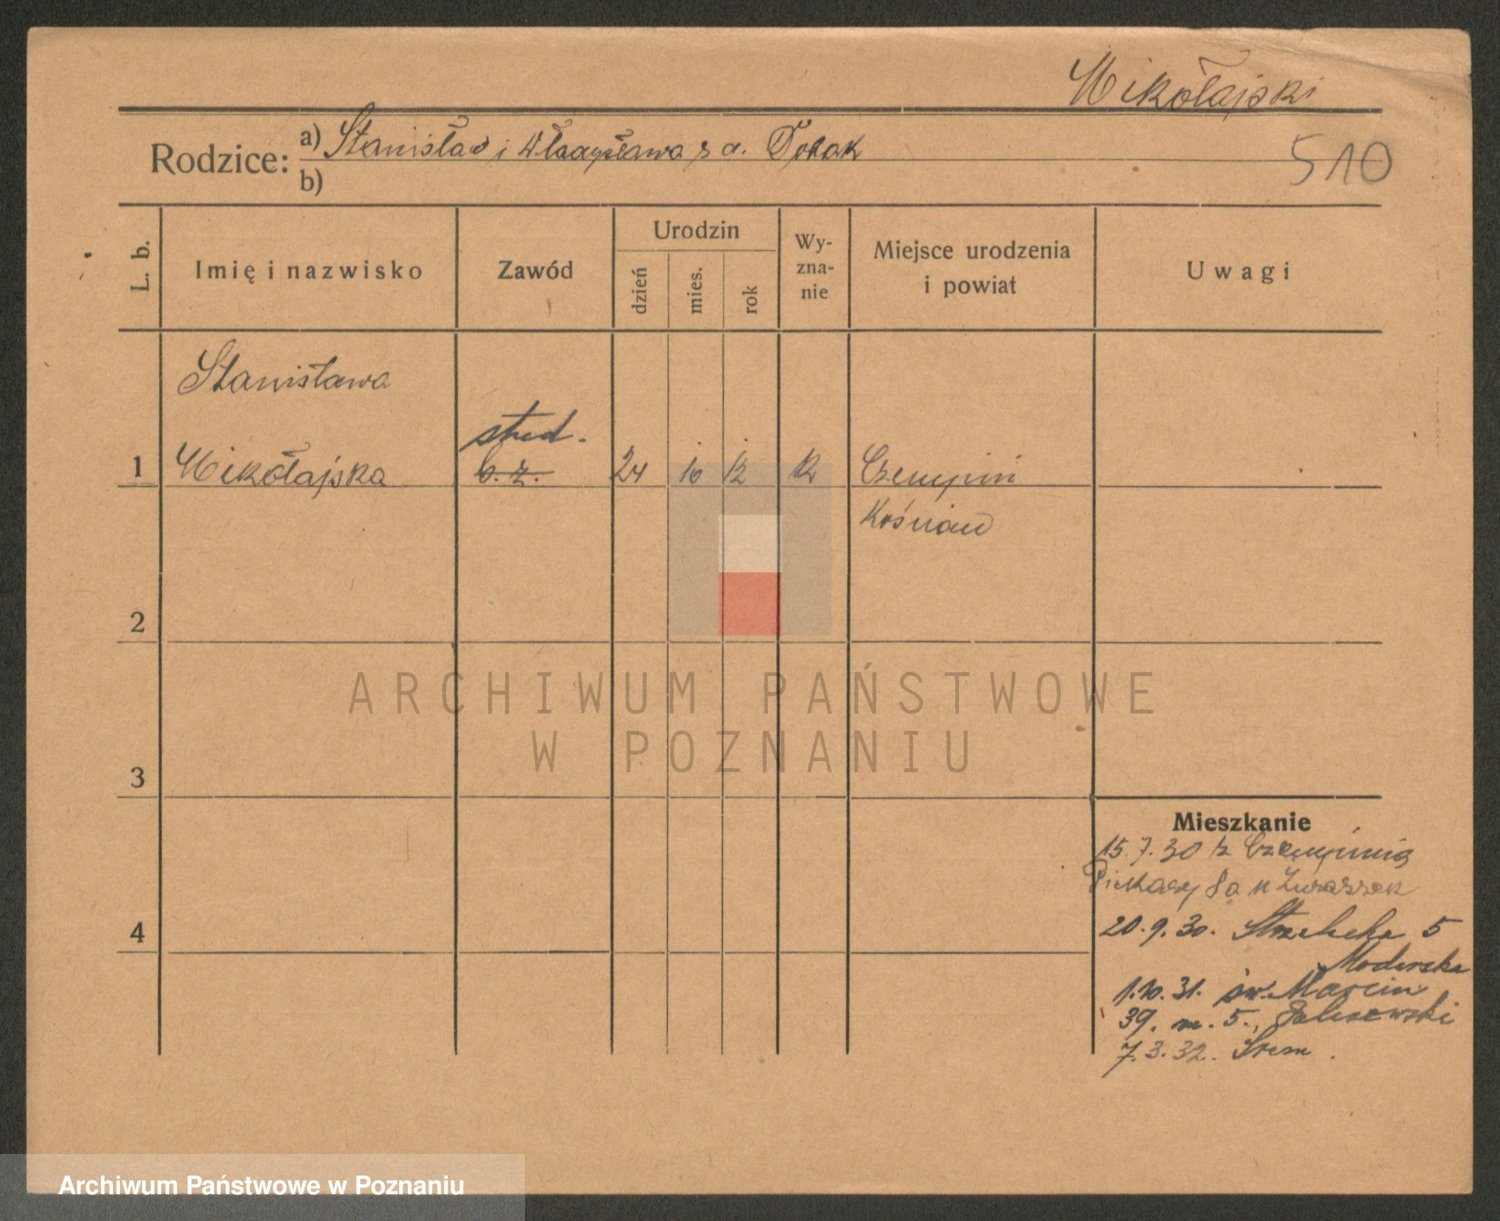 Mikołajski
Rodzice: a) Stanisław i Władysława z d. Polak
b)
510
L. b. Imię i nazwisko Zawód Urodzin dzień mies. rok Wy-zna-nie Miejsce urodzenia i powiat Uwagi
Stanisława
stud.
1 Mikołajska b. z. 24 10 12 Czempiń
Kościan
2
3
4
Mieszkanie
15.7.30 z Czempinia
Piekary 8a
20.9.30. Strzelecka 5
1.10.31. św. Marcin
39. m. 5.
7.3.32. Śrem.
ARCHIWUM PAŃSTWOWE
W POZNANIU
Archiwum Państwowe w Poznaniu